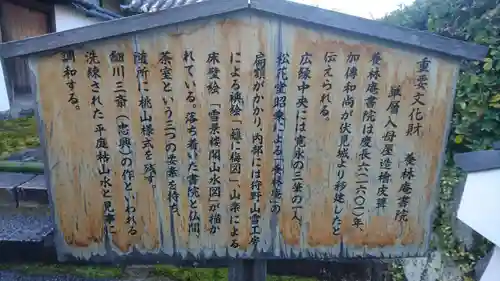 重要文化財　養林庵書院
単層　入母屋造檜皮葺
養林庵書院は慶長六(一六〇一)年
加傳和尚が伏見城より移建したと
伝えられる。
広縁中央には寛永の三筆の一人
松花堂昭乗による「養林庵」の
扁額がかかり、内部には狩野山雪工房
による襖絵「籬に梅図」山楽による
床壁絵「雪景楼閣山水図」が描か
れている。落ち着いた書院と仏間
茶室という三つの要素を持ち、
随所に桃山様式を残す。
細川三斎(忠興)の作といわれる
洗練された平庭枯山水と見事に
調和する。